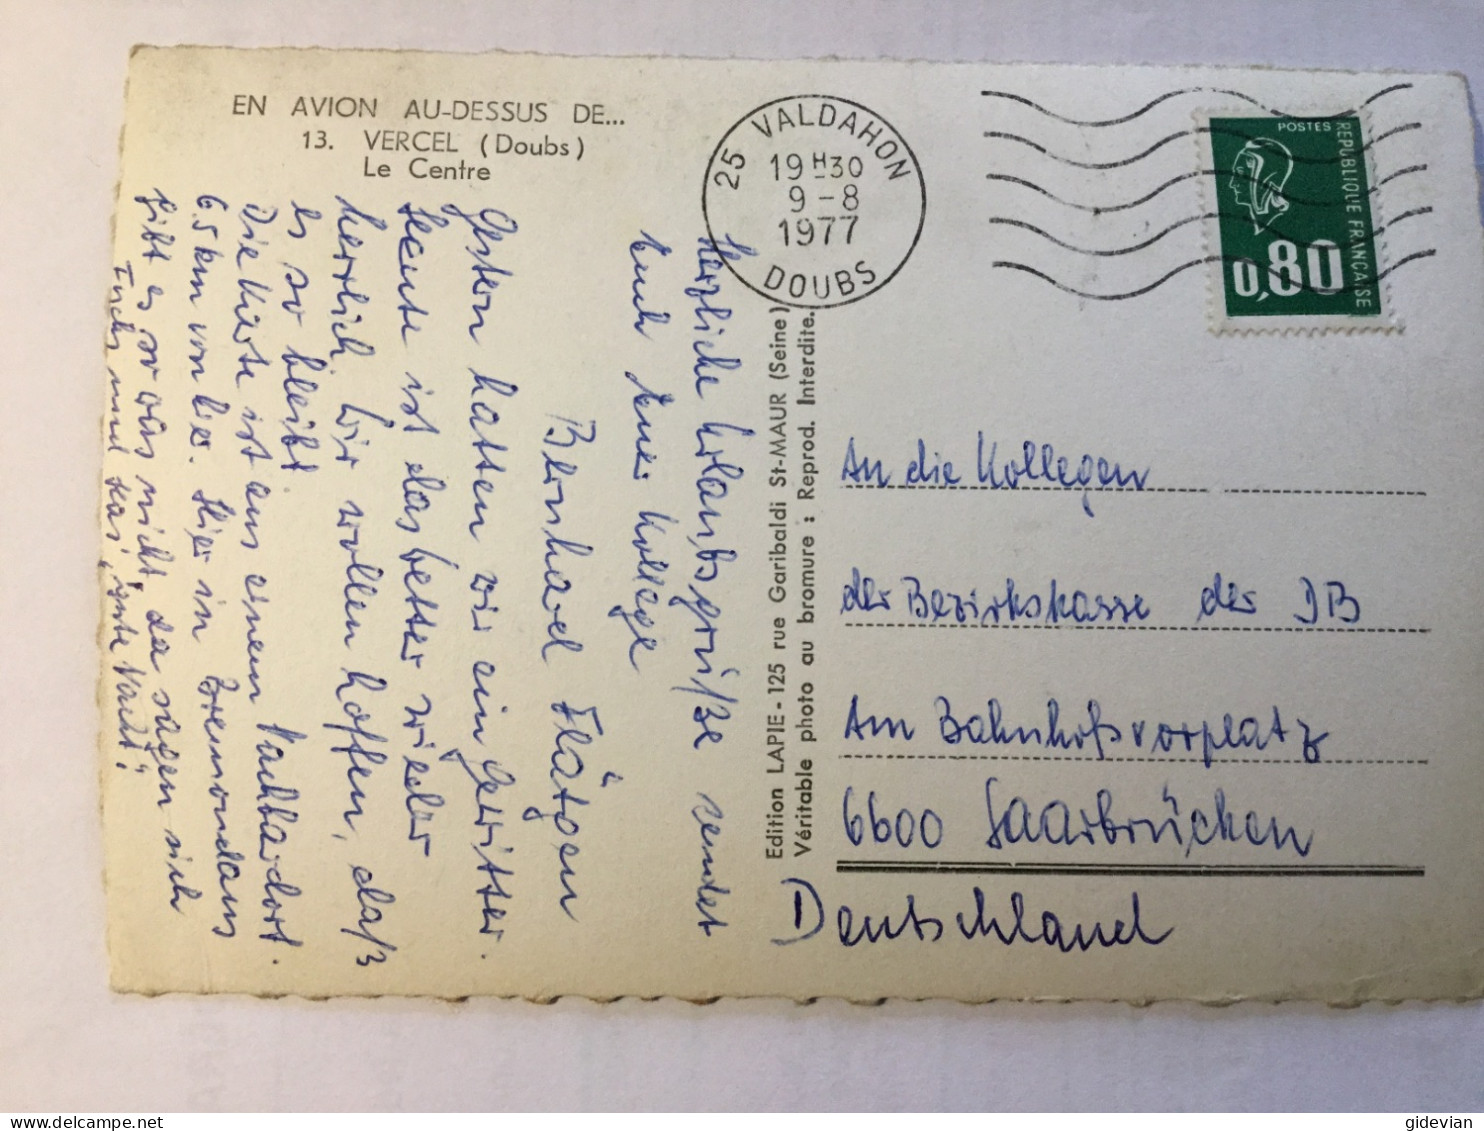 EN AVION AU-DESSUS DE...
13. VERCEL (Doubs)
Le Centre
25 VALDAHON
19 H30
9-8
1977
DOUBS
POSTES
REPUBLIQUE FRANCAISE
0,80
Herzliche Urlaubsgrüße sendet
Euch Euer Kollege
Bernhard Flätgen
Gestern hatten wir ein Gewitter.
Heute ist das Wetter wieder
herrlich. Wir wollen hoffen, daß
es so bleibt.
Die Karte ist aus einem Nachbardorf.
6.5 km von hier. Hier in Bremondans
gibt es so was nicht, da sagen sich
Fuchs und Has' „gute Nacht"
Edition LAPIE - 125 rue Garibaldi St-MAUR (Seine)
Véritable photo au bromure : Reprod. Interdite.
An die Kollegen
der Bezirkskasse der DB
Am Bahnhofsvorplatz
6600 Saarbrücken
Deutschland
gidevian